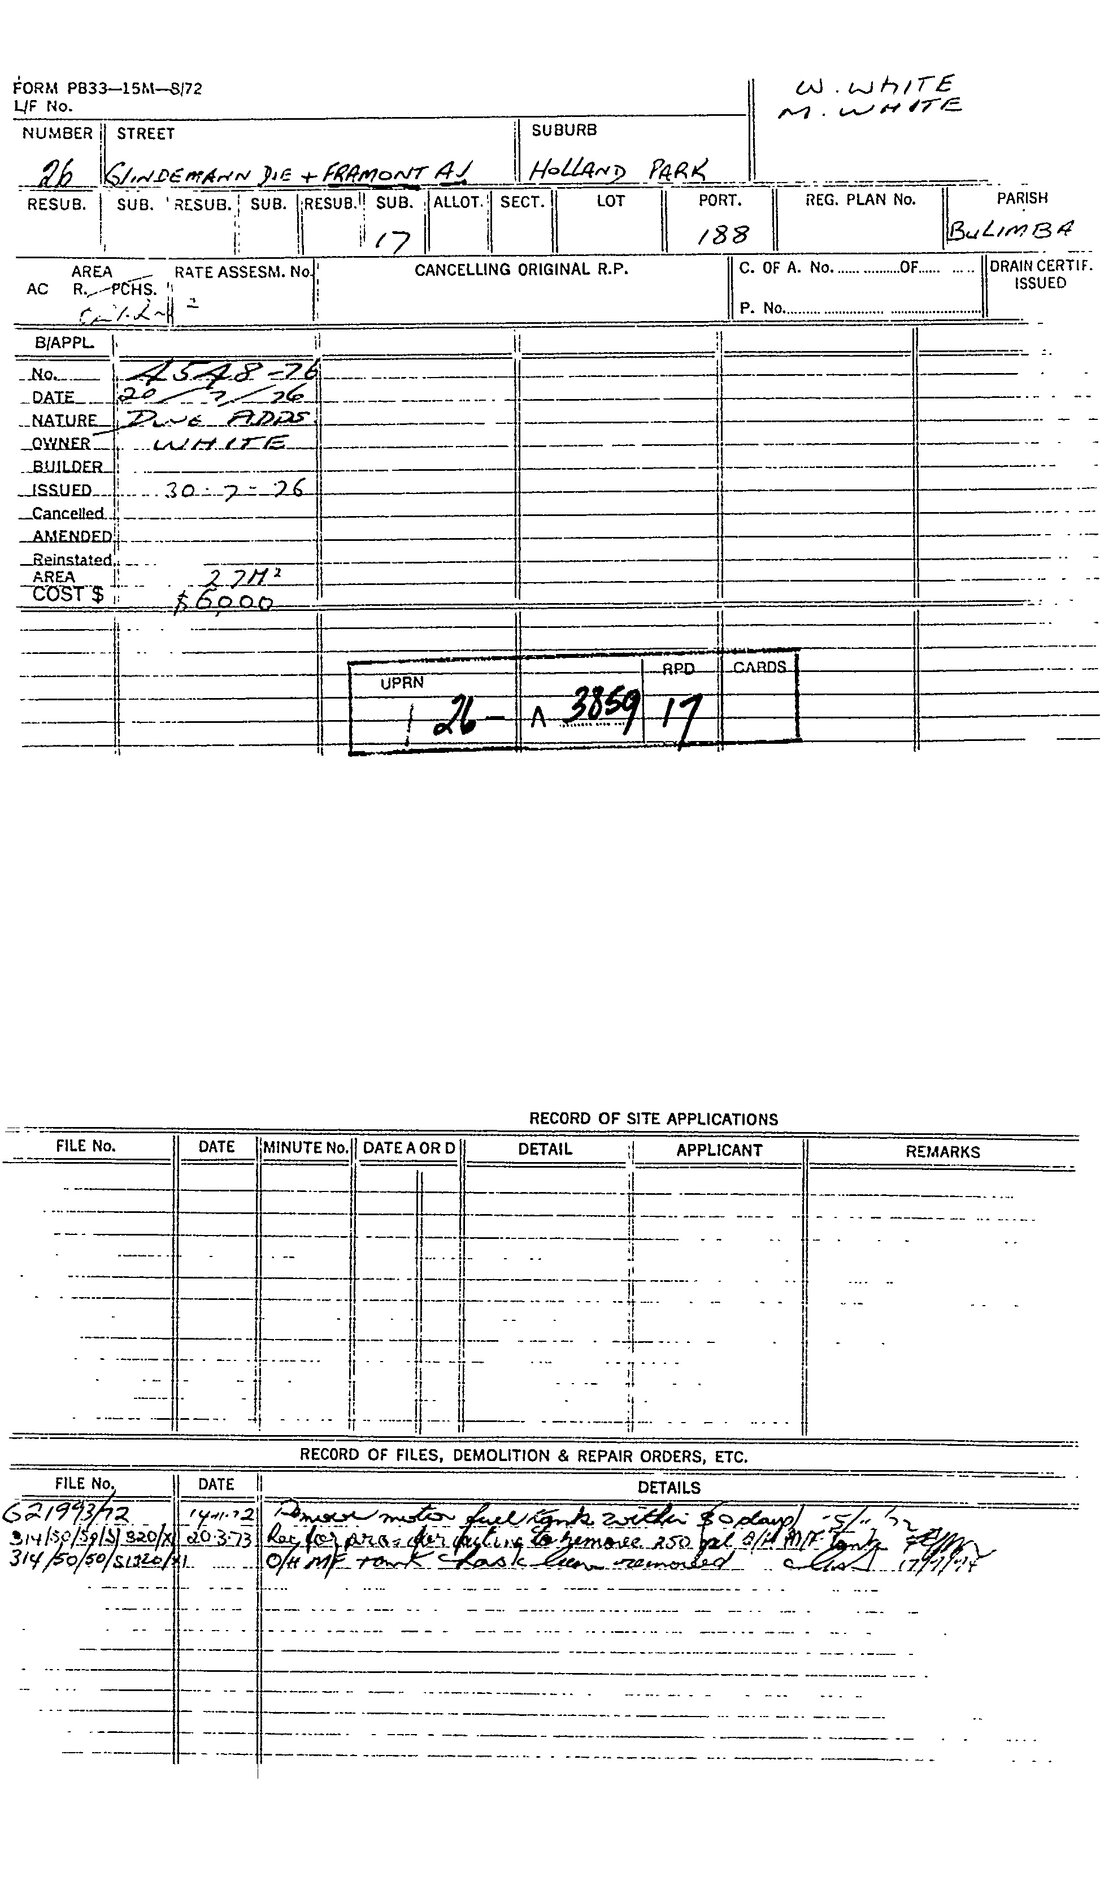 FORM PB33—15M—8/72
L/F No.
W. WHITE
M. WHITE
NUMBER STREET SUBURB
26 GLINDEMANN DIE + FRAMONT AV HOLLAND PARK
RESUB. SUB. RESUB. SUB. RESUB. SUB. ALLOT. SECT. LOT PORT. REG. PLAN No. PARISH
17 188 BULIMBA
AREA RATE ASSESM. No. CANCELLING ORIGINAL R.P. C. OF A. No. OF DRAIN CERTIF. ISSUED
AC R. PCHS.
P. No.
B/APPL.
No. 4548-76
DATE 20/7/76
NATURE DWE ADDS
OWNER WHITE
BUILDER
ISSUED 30-7-76
Cancelled
AMENDED
Reinstated
AREA 27M²
COST $ $6000
UPRN RPD CARDS
1 26 — A 3859 17
RECORD OF SITE APPLICATIONS
FILE No. DATE MINUTE No. DATE A OR D DETAIL APPLICANT REMARKS
RECORD OF FILES, DEMOLITION & REPAIR ORDERS, ETC.
FILE No. DATE DETAILS
G21993/72 14-11-72 Remove motor fuel tank within days
314/50/50/S1320/XI 20.3.73 for to remove 250 gal O/H M/F Tank
314/50/50/S1320/XI O/H MF Tank has been removed 17/7/74